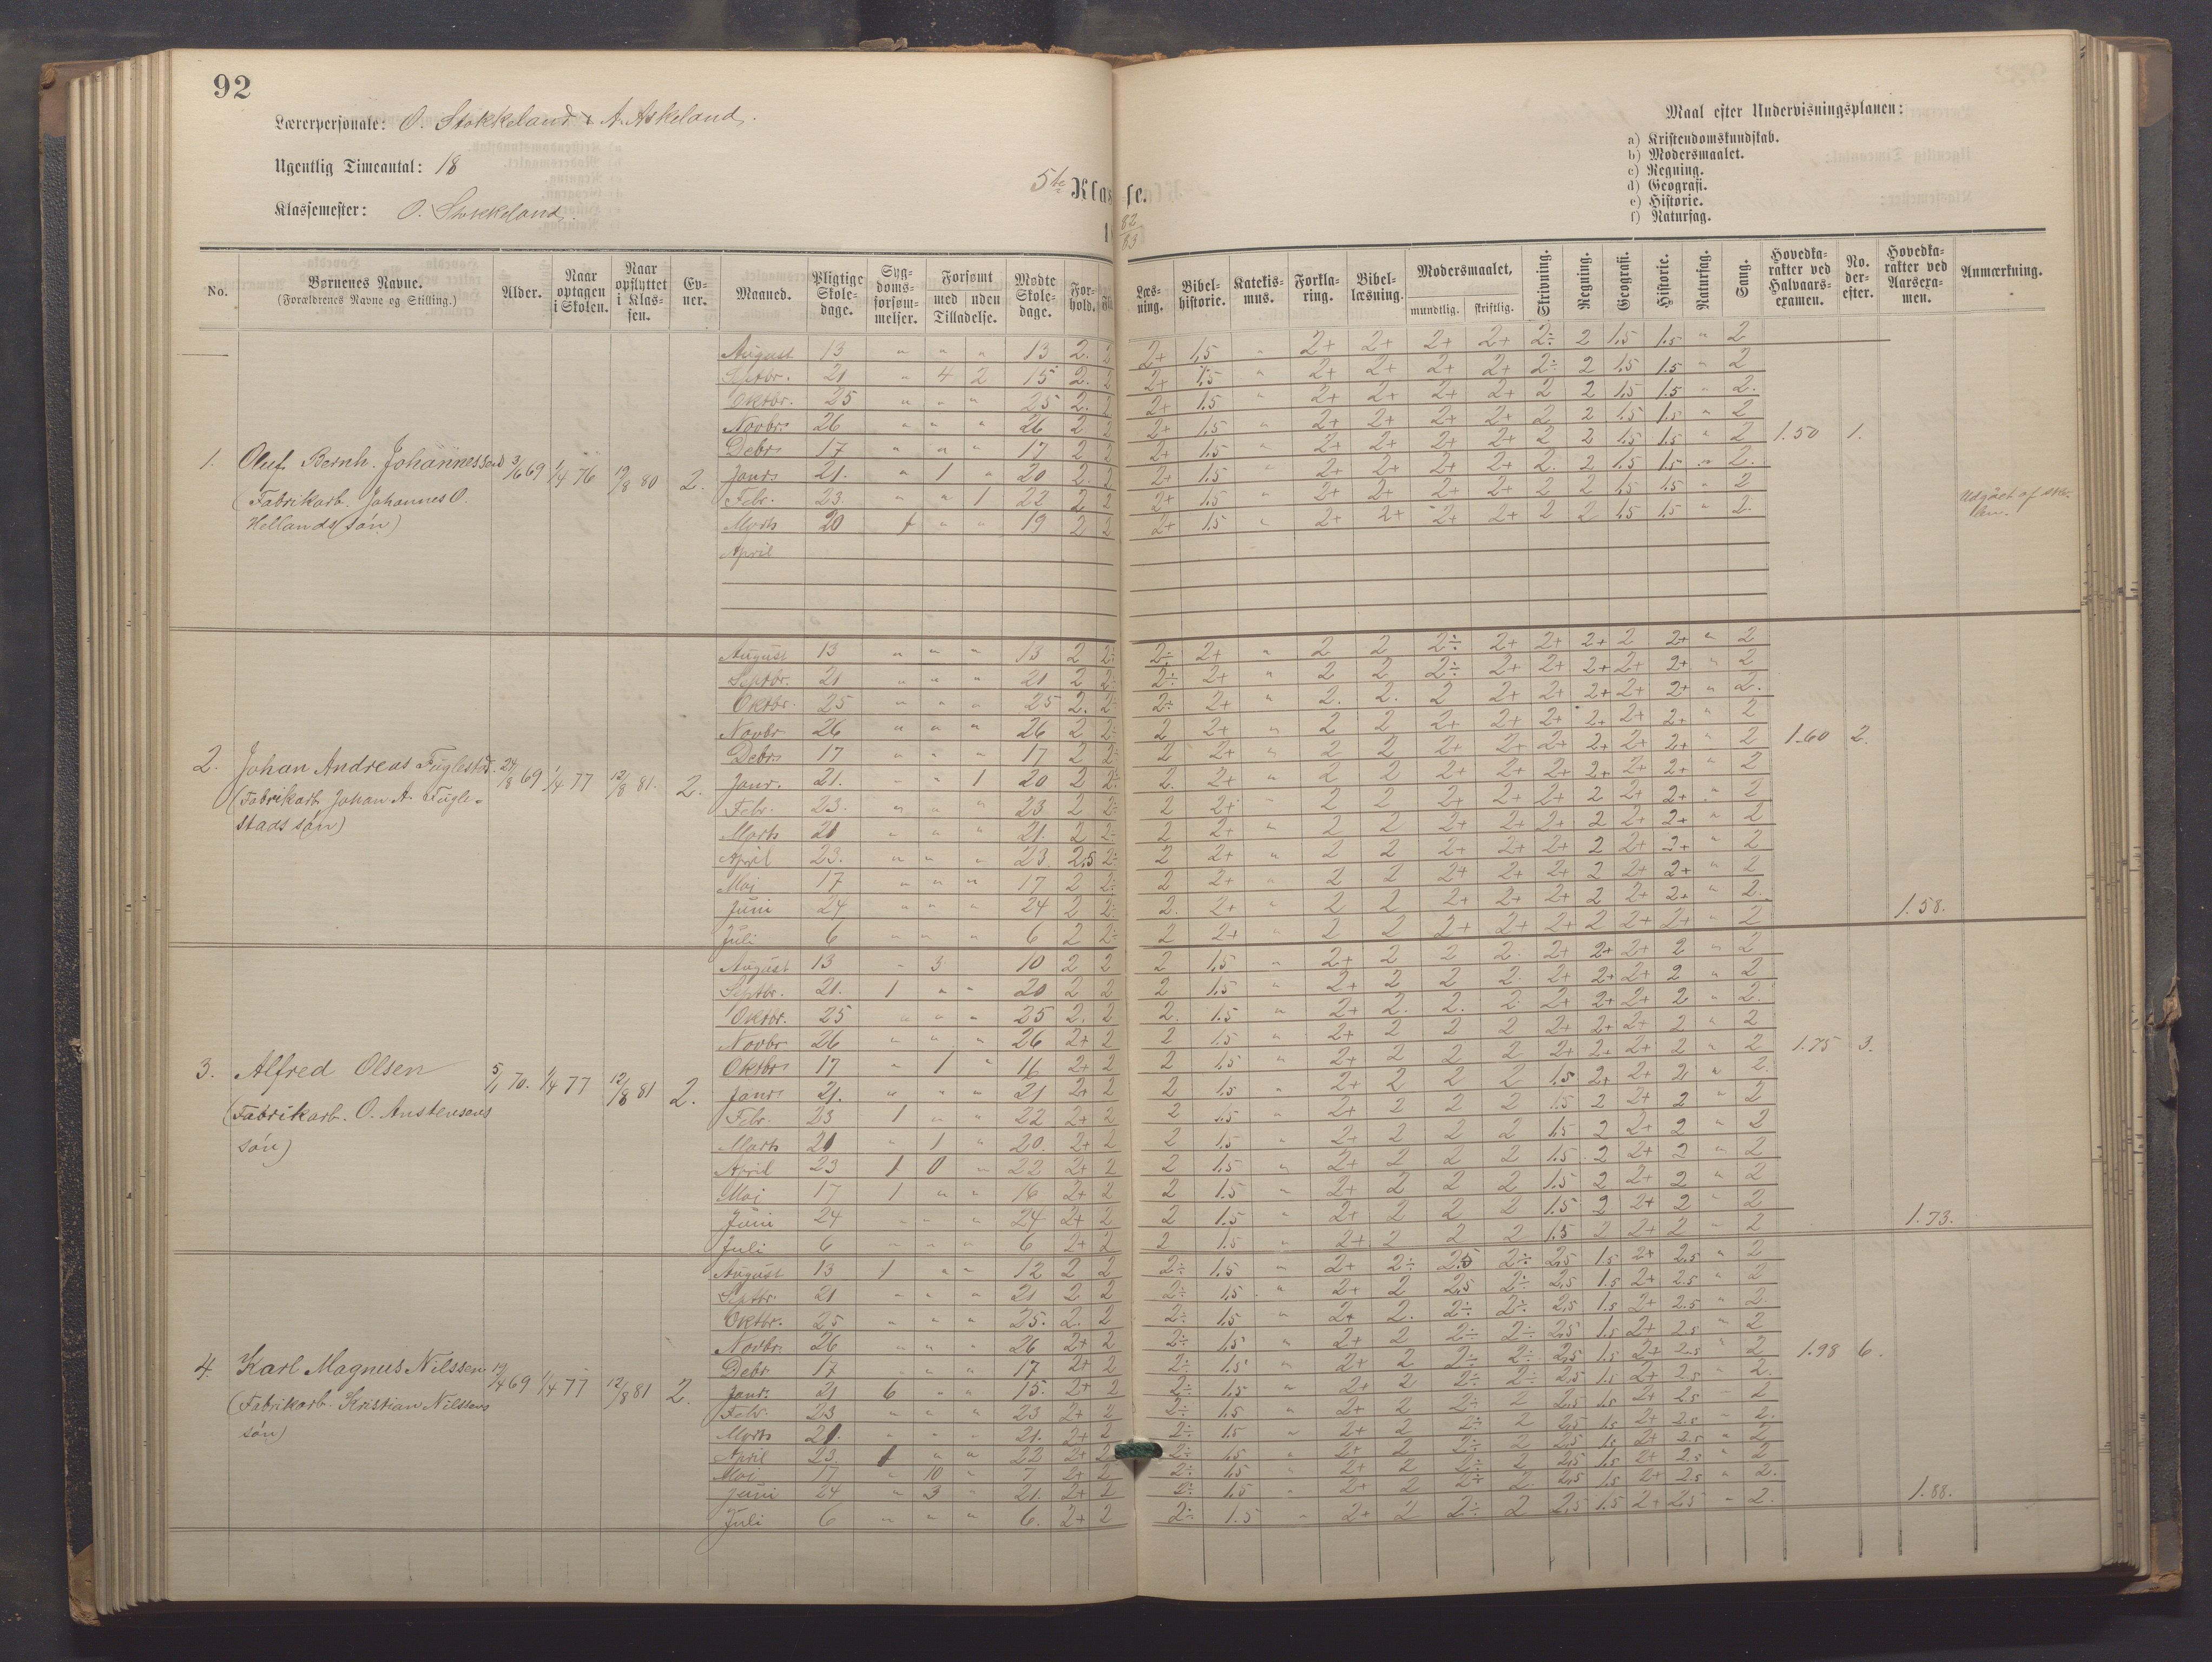 92
Lærerpersonale: O. Stokkeland & A. Askeland.
Ugentlig Timeantal: 18
Klassemester: O. Stokkeland.
5te Klasse.
18 82/83
Maal efter Undervisningsplanen:
a) Kristendomskundskab.
b) Modersmaalet.
c) Regning.
d) Geografi.
e) Historie.
f) Naturfag.
No. | Børnenes Navne. (Forældrenes Navne og Stilling.) | Alder. | Naar optagen i Skolen. | Naar opflyttet i Klassen. | Evner. | Maaned. | Pligtige Skoledage. | Sygdomsforsømmelser. | Forsømt med Tilladelse. | uden Tilladelse. | Mødte Skoledage. | Forhold. | Fl | Læsning. | Bibelhistorie. | Katekismus. | Forklaring. | Bibellæsning. | Modersmaalet, mundtlig. | skriftlig. | Skrivning. | Regning. | Geografi. | Historie. | Naturfag. | Sang. | Hovedkarakter ved Halvaarsexamen. | No. derefter. | Hovedkarakter ved Aarsexamen. | Anmærkning.
1. Oluf Bernh. Johannessen 3/6 69 1/4 76 19/8 80 2. 1.50 1.
(Fabrikarb. Johannes O.
Hellands søn)
Udgået af sko-
len.
August 13 " " " 13 2. 2 2+ 1,5 " 2+ 2+ 2+ 2+ 2÷ 2 1,5 1.5 " 2
Septbr. 21 " 4 2 15 2. 2 2+ 1,5 " 2+ 2+ 2+ 2+ 2÷ 2 1,5 1.5 " 2
Oktbr. 25 " " " 25 2. 2 2+ 1.5 " 2+ 2+ 2+ 2+ 2 2 1,5 1.5 " 2.
Novbr. 26 " " " 26 2 2 2+ 1,5 " 2+ 2+ 2+ 2+ 2 2 1.5 1.5 " 2
Debr. 17 " " " 17 2 2 2+ 1,5 " 2+ 2+ 2+ 2+ 2 2 1,5 1.5 " 2
Janr. 21. " 1 " 20 2. 2 2+ 1.5 " 2+ 2+ 2+ 2+ 2. 2 1.5 1.5 " 2.
Feb. 23. " " 1 22 2 2 2+ 1,5 " 2+ 2+ 2+ 2+ 2 2 1,5 1.5 " 2
Marts 20 1 " " 19 2 2 2+ 1,5 " 2+ 2+ 2+ 2+ 2 2 1,5 1,5 " 2.
April
2. Johan Andreas Fuglestad. 24/8 69 1/4 77 12/8 81. 2. 1.60 2. 1.58.
(Fabrikarb. Johan A. Fugle-
stads søn)
August 13 " " " 13 2 2÷ 2÷ 2+ " 2 2 2÷ 2+ 2+ 2+ 2 2+ " 2
Septbr. 21 " " " 21 2 2÷ 2÷ 2+ " 2 2 2÷ 2+ 2+ 2+ 2+ 2+ " 2
Oktbr. 25 " " " 25 2. 2÷ 2÷ 2+ " 2. 2. 2 2+ 2+ 2+ 2+ 2+ " 2.
Novbr 26 " " " 26 2 2÷ 2 2+ " 2 2 2+ 2+ 2+ 2+ 2+ 2+ " 2
Debr. 17 " " " 17 2 2÷ 2 2+ " 2 2 2+ 2+ 2+ 2+ 2+ 2+ " 2
Janr. 21. " " 1 20 2 2÷ 2. 2+ " 2 2 2+ 2+ 2+ 2+ 2+ 2+ " 2
Febr. 23. " " " 23 2 2÷ 2 2+ " 2 2 2+ 2+ 2+ 2 2+ 2+ " 2
Marts 21 " " " 21. 2 2÷ 2 2+ " 2 2 2+ 2+ 2+ 2 2+ 2+ " 2
April 23. " " " 23. 2,5 2÷ 2 2+ " 2 2 2+ 2+ 2+ 2 2+ 2+ " 2
Maj 17 " " " 17 2 2÷ 2 2+ " 2 2 2+ 2+ 2+ 2 2+ 2+ " 2
Juni 24 " " " 24 2 2÷ 2. 2+ " 2 2 2+ 2+ 2+ 2 2+ 2+ " 2.
Juli 6 " " " 6 2 2÷ 2 2+ " 2 2 2+ 2+ 2+ 2 2+ 2+ " 2
3. Alfred Olsen 5/1 70. 1/4 77 12/8 81 2. 1.75 3. 1.73.
(Fabrikarb. O. Austensens
søn)
August 13 " 3 10 2 2 2 1,5 " 2+ 2 2 2. 2+ 2+ 2+ 2 " 2
Septbr. 21. 1 " " 20 2 2 2 1,5 " 2+ 2 2 2. 2+ 2+ 2+ 2 " 2
Oktbr. 25 " " " 25 2. 2 2. 1.5 " 2+ 2. 2. 2. 2+ 2+ 2+ 2 " 2.
Novbr 26 " " " 26 2+ 2 2 1.5 " 2+ 2 2 2 2+ 2+ 2+ 2 " 2
Oktbr. 17 " 1 " 16 2+ 2 2 1,5 " 2+ 2 2 2 2+ 2+ 2+ 2 " 2
Janr. 21. " " " 21 2+ 2 2 1,5 " 2+ 2 2 2 1.5 2+ 2+ 2 " 2.
Febr. 23 1 " " 22 2+ 2 2 1.5 " 2+ 2 2 2 1.5 2 2+ 2 " 2
Marts 21 " 1 " 20. 2+ 2 2 1.5 " 2+ 2 2 2 1,5 2 2+ 2 " 2
April 23 1 0 " 22 2+ 2 2 1.5 " 2+ 2 2 2 1.5 2 2+ 2 " 2
Maj 17 1 " " 16 2+ 2 2 1.5 " 2+ 2 2 2 1.5 2 2+ 2 " 2
Juni 24 " " " 24 2+ 2 2 1.5 " 2+ 2 2 2 1.5 2 2+ 2 " 2
Juli 6 " " " 6 2+ 2 2 1.5 " 2+ 2 2 2 1.5 2 2+ 2 " 2
4. Karl Magnus Nilssen 19/4 69 1/4 77 12/8 81 2. 1.98 6. 1.88.
(Fabrikarb. Kristian Nilssens
søn)
August 13 1 " " 12 2 2 2÷ 1.5 " 2+ 2÷ 2.5 2÷ 2,5 1.5 2+ 2.5 " 2
Septbr. 21 " " " 21 2 2 2÷ 1,5 " 2+ 2 2,5 2÷ 2,5 1.5 2+ 2.5 " 2
Oktbr. 25 " " " 25. 2. 2 2÷ 1,5 " 2+ 2. 2÷ 2÷ 2,5 1.5 2+ 2.5 " 2.
Novbr. 26 " " " 26 2+ 2 2÷ 1,5 " 2+ 2 2÷ 2÷ 2,5 1.5 2+ 2.5 " 2
Debr 17 " " " 17 2+ 2 2÷ 1.5 " 2+ 2 2÷ 2÷ 2,5 1.5 2+ 2.5 " 2
Janr. 21 6 " " 15. 2+ 2 2÷ 1,5 " 2+ 2 2÷ 2÷ 2,5 1.5 2+ 2.5 " 2.
Febr. 23 " " " 23 2+ 2 2÷ 1,5 " 2+ 2 2÷ 2 2,5 1,5 2+ 2.5 " 2
Marts 21. " " " 21. 2+ 2 2÷ 1.5 " 2+ 2 2÷ 2 2,5 1.5 2+ 2.5 " 2.
April 23. 1 " " 22 2+ 2 2÷ 1,5 " 2+ 2 2÷ 2 2,5 1.5 2+ 2.5 " 2
Maj 17 " 10 " 7 2+ 2 2÷ 1,5 " 2+ 2 2÷ 2 2,5 1.5 2+ 2.5 " 2
Juni 24 " 3 " 21. 2+ 2 2÷ 1,5 " 2+ 2 2÷ 2. 2,5 1.5 2+ 2.5 " 2.
Juli 6 " " " 6. 2+ 2 2÷ 1.5 " 2+ 2 2÷ 2 2,5 1.5 2+ 2,5 " 2.